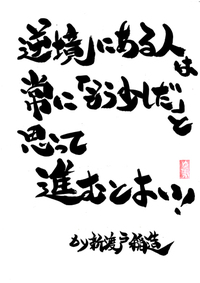 逆境にある人は
常に「もう少しだ」と
思って
進むとよい!
by 新渡戸稲造